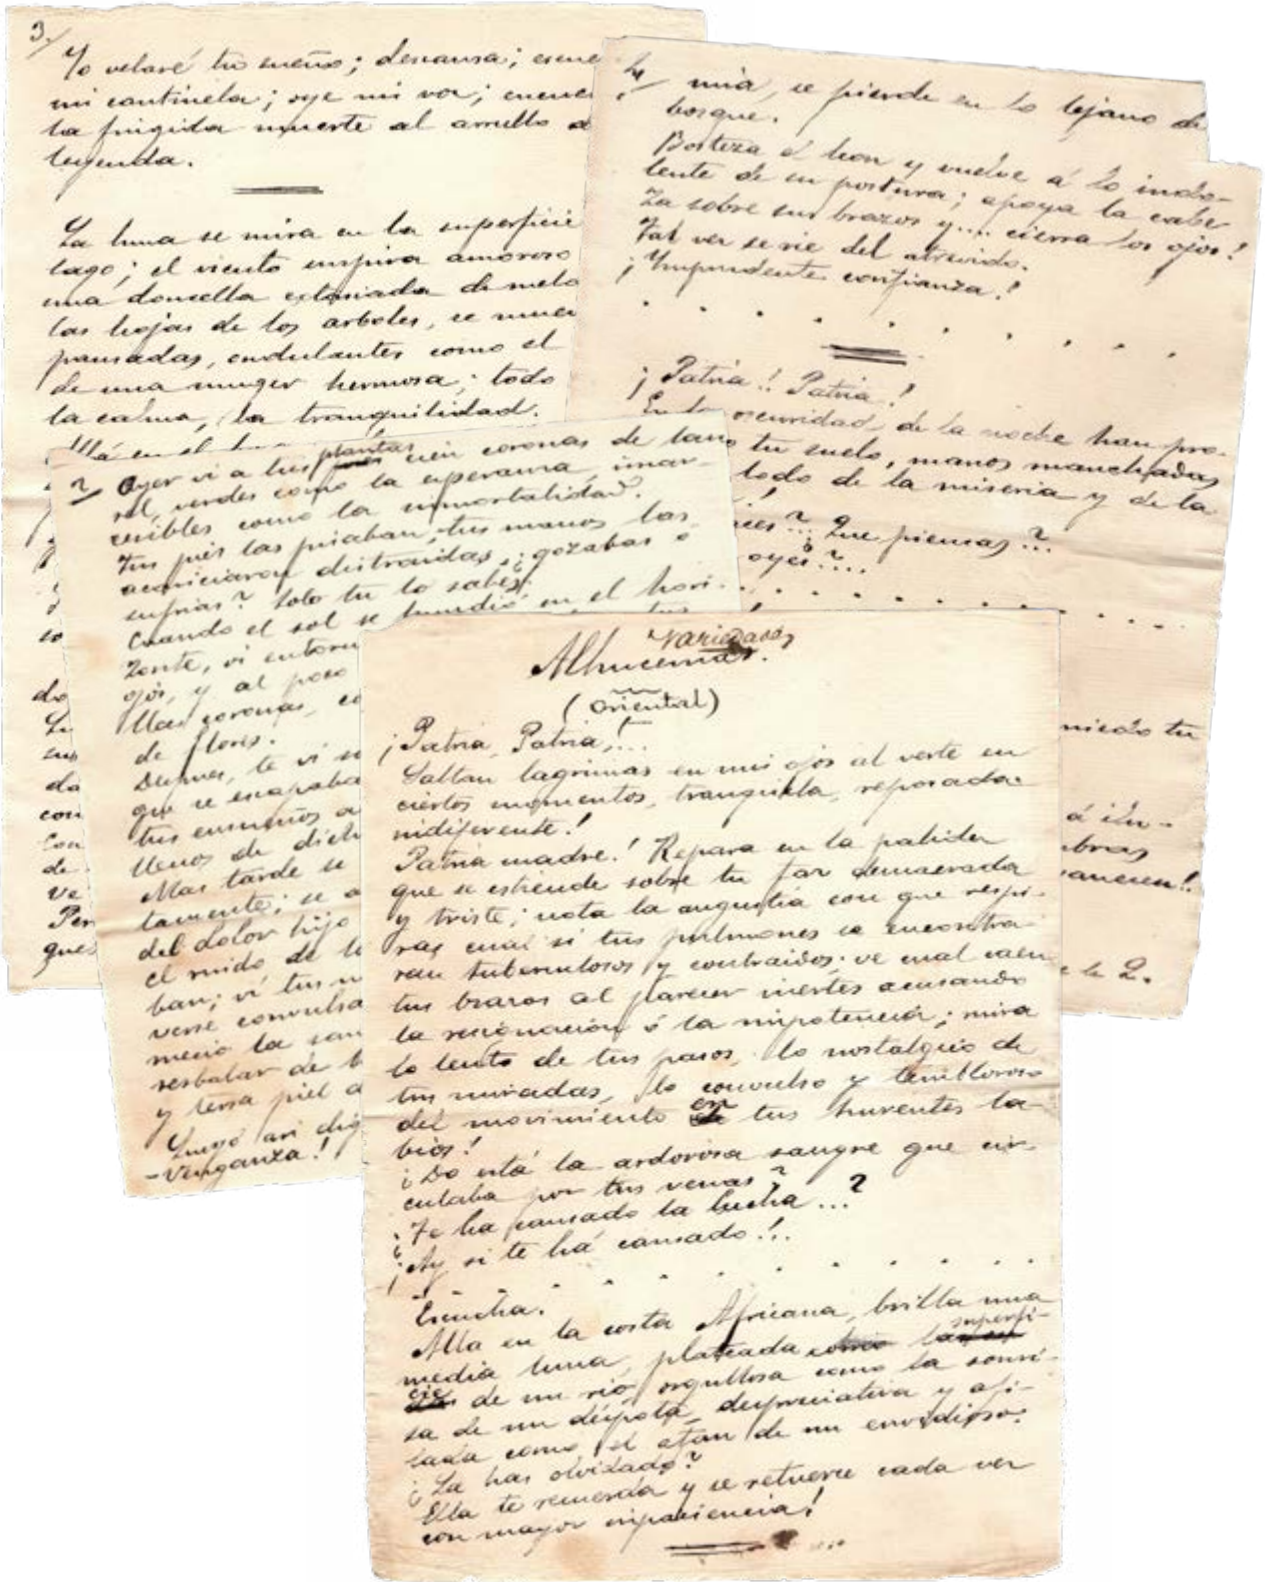 3/
Yo velaré tu sueño; descansa; escu
mi cantinela; oye mi voz; encue
la frigida muerte al arrullo d
leyenda.
La luna se mira en la superficie
lago; el viento suspira amoroso
una doncella extasiada de
las hojas de los arboles, se
pausadas, ondulantes como el
de una muger hermosa; todo
la calma, la tranquilidad.
Allá en el
so
do
La
sus
da
con
Con
de
Ve
Per
que
4/
mia, se pierde en lo lejano de
bosque.
Bosteza el leon y vuelve á lo indo-
lente de su postura; apoya la cabe
za sobre sus brazos y.... cierra los ojos!
Tal vez se rie del atrevido.
¡Imprudente confianza!
¡Patria!! Patria!
En la oscuridad, de la noche han pro-
tu suelo, manos manchadas
lodo de la miseria y de la
ices?... Que piensas?...
oyes?....
miedo tu
á ilu-
bras
vanecen!!
2/
Ayer vi a tus plantas cien coronas de lau
rel, verdes como la esperanza, inmar-
cesibles como la inmortalidad.
Tus piés las pisaban, tus manos las
acariciaron distraidas, ¿gozabas ó
sufrias? Solo tu lo sabes!
Cuando el sol se hundió en el hori-
zonte, vi entorn
ojos, y al poco
llas coronas, co
de flores.
Despues, te vi
que se escapaba
tus ensueños
llenos de dich
Mas tarde se
tamente; se a
del dolor hijo
el ruido de
ban; ví tus
verse convulsa
mecio la san
resbalar de
y tersa piel d
Luego así dig
-Venganza!
Variedades
Alhucemas.
(Oriental)
¡Patria, Patria!...
Saltan lagrimas en mis ojos al verte en
ciertos momentos, tranquila, reposada
indiferente!
Patria madre! Repara en la palidez
que se estiende sobre tu faz demacrada
y triste; nota la angustia con que respi-
ras cual si tus pulmones se encontra-
ran tuberculosos y contraidos; ve cual caen
tus brazos al parecer inertes acusando
la resignacion ó la impotencia; mira
lo lento de tus pasos, lo nostalgico de
tus miradas, lo convulso y tembloroso
del movimiento en tus hirientes la-
bios!
¿Do está la ardorosa sangre que cir-
culaba por tus venas?
¿Te ha cansado la lucha...?
¡Ay si te há cansado!..
Escucha.
Alla en la costa Africana, brilla una
media luna, plateada como la superfi-
cie de un rio, orgullosa como la sonri-
sa de un déspota, despreciativa y afi-
lada como el afan de un envidioso.
¿La has olvidado?
Ella te recuerda y se retuerce cada vez
con mayor impaciencia!